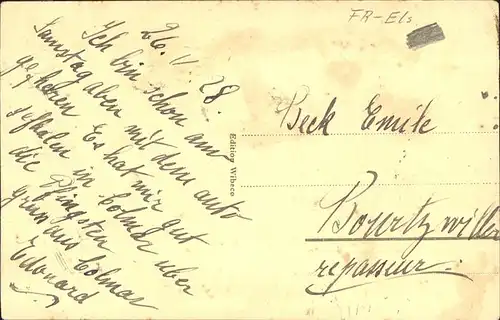 FR-Els
26. V 28.
Ich bin schon am
Samstag aben mit dem auto
gefahren Es hat mir gut
gefhalen in Colmar über
die Pfingsten
gruss aus Colmar
Edouard
Edition Wibeco
Beck Emile
Bourtzwiller
repasseur.